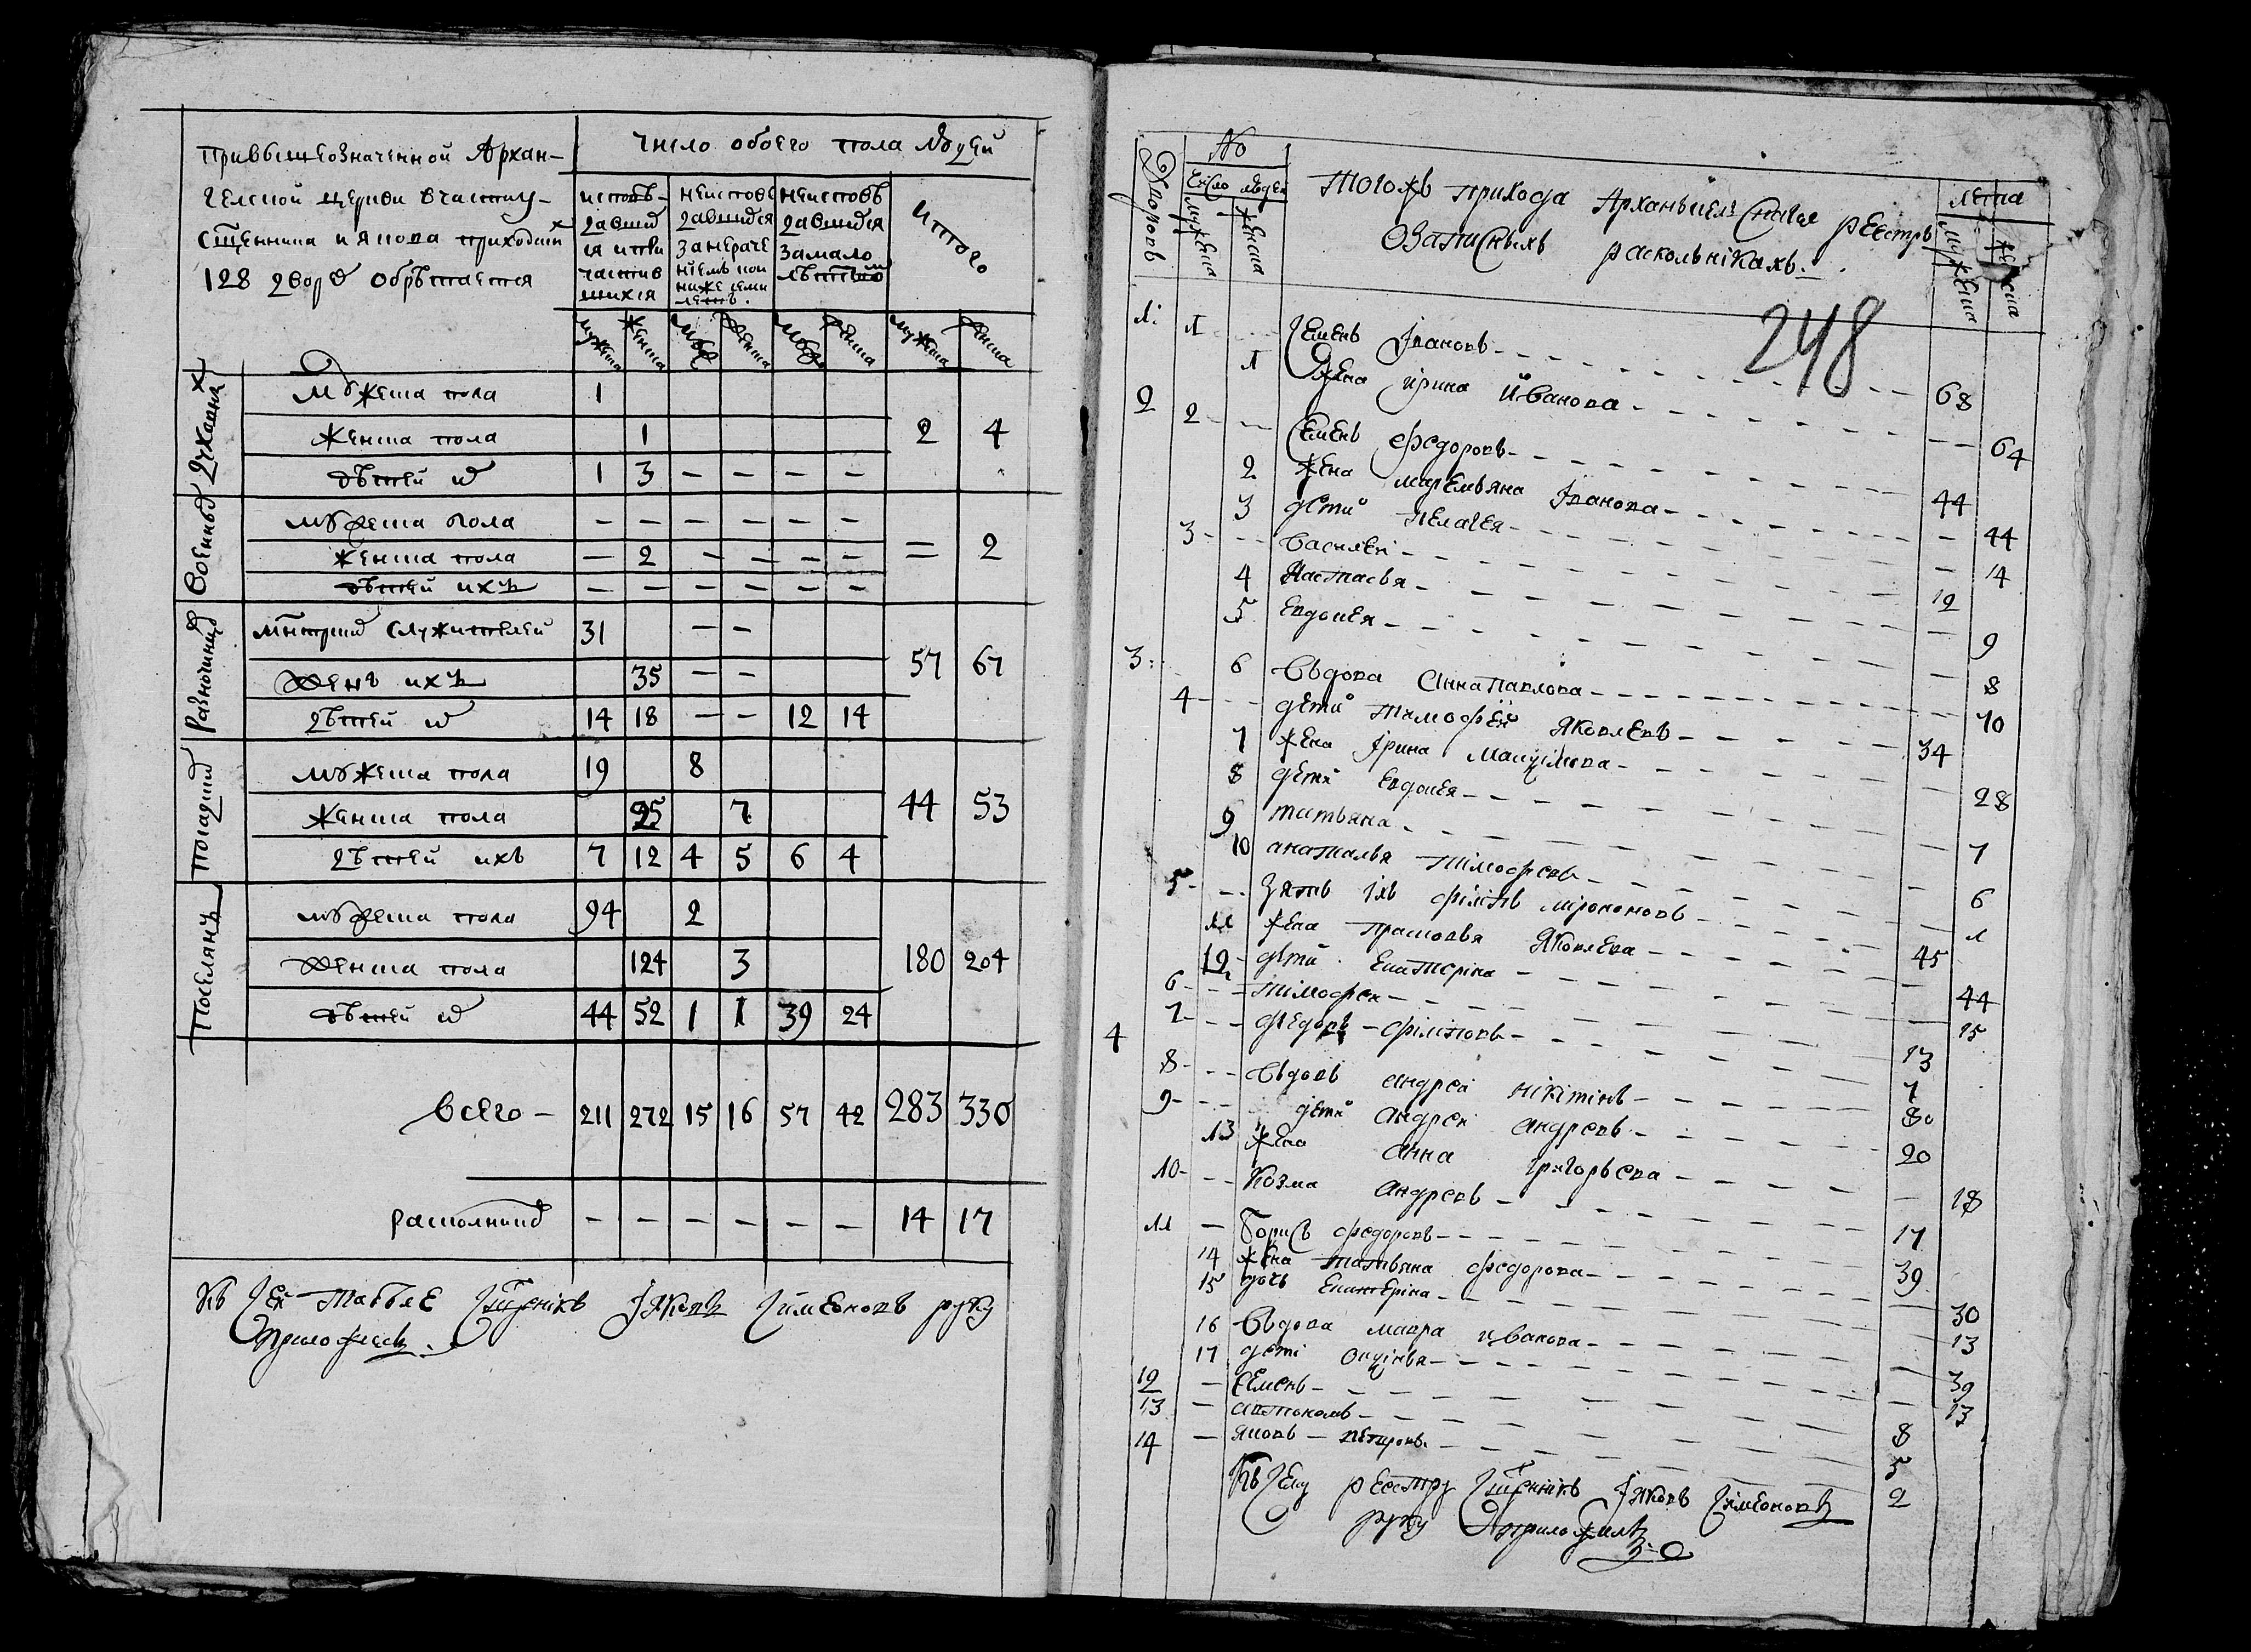 При вышеозначенной Архан-
гелской церкви в части у-
сщенника иякова приходских
128 дворех обрѣтается
Число обоего пола людей
исповѣ-
давших
ся и при
частив
шихся
неисповѣ
давшихся
за нераче
нiемъ кои
ниже семи
лѣтъ.
неисповѣ
давшихся
за мало
лѣтствомъ
Итого
мужеска женска мужес женска мужес женска мужеска женска
Духовных
мужеска пола 1 2 4
женска пола 1
дѣтей их 1 3 – – – –
Военных
мужеска пола – – – – – – = 2
женска пола – 2 – – – –
дѣтей ихъ – – – – – –
Разночинцов
служителей 31 – – 57 67
жен ихъ 35 – –
дѣтей их 14 18 – – 12 14
Посадских
мужеска пола 19 8 44 53
женска пола 25 7
дѣтей ихъ 7 12 4 5 6 4
Поселянъ
мужеска пола 94 2 180 204
женска пола 124 3
дѣтей их 44 52 1 1 39 24
всего – 211 272 15 16 57 42 283 330
расколников – – – – – – 14 17
Къ сей табеле сщенникъ Iяковъ Симеоновъ руку
приложилъ.
№
Дворовъ
Число людей
мужеска
женска
Тогожъ прихода Арханьгельскаго реестръ
о записныхъ раскольнiкахъ.
лета
мужеска
женска
248
1. 1 Семенъ Iвановъ 68
1 жена ирина Иванова 64
2 2 Семенъ федоровъ 44
2 жена маремьяна Iванова 44
3 дети пелагея 14
3 Василеi 12
4 Настасья 9
5 Евдокея 8
3: 6 Вдова Анна павлова 70
4 дети тимофей Яковлевъ 34
7 жена Iрина Максiмова 28
8 дети Евдокея 7
9 татьяна 6
10 анаталья тiмофеев 1
5 зять iхъ фiлiпъ мiроновъ 45
11 жена прасковья Яковлева 44
12 дети Екатерiна 15
6 тiмофеи 13
7 федоръ – фiлiповъ 7
4 8 Вдовъ андреi нiкiтiнъ 80
9 дети андреи андреевъ 20
13 жена анна григорьева 18
10 Козма андреевъ 17
11 Борисъ федоровъ 39
14 жена татьяна федорова 30
15 дочь Екатерiна 13
16 Вдова мавра иванова 39
17 детi Оксiнья 13
12 Семенъ 8
13 автономъ 5
14 яковъ – петровъ 2
Къ сему реестру сщенникъ Iяковъ Симеоновъ
руку приложилъ